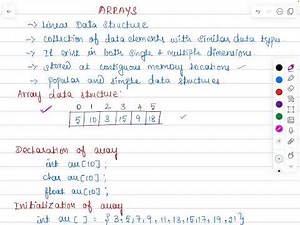 ARRAYS
→ Linear Data Structure
→ Collection of data elements with similar data type.
→ It exist in both single & multiple dimensions.
→ stored at contiguous memory locations
→ popular and simple data structures.
Array data structure:
0 1 2 3 4 5
5 10 3 15 9 18
Declaration of array
int au[10];
char au[10];
float au[10];
Initialization of array
int au[ ] = {3,5,7,9,11,13,15,17,19,21}